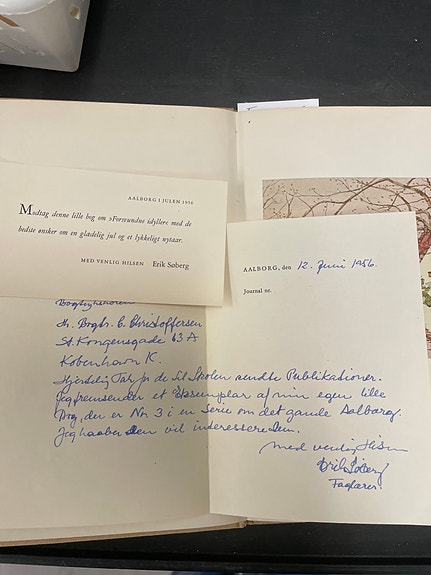 AALBORG I JULEN 1956
Modtag denne lille bog om »Forsvundne idyller« med de
bedste ønsker om en glædelig jul og et lykkeligt nytaar.
MED VENLIG HILSEN Erik Søberg
AALBORG, den 12. Juni 1956.
Journal nr.
Hr. Bogtr. C. Christoffersen
St. Kongensgade 63 A
København K.
Hjertelig Tak for de til Skolen sendte Publikationer.
Jeg fremsender et Eksemplar af min egen lille
Bog, der er Nr. 3 i en Serie om det gamle Aalborg.
Jeg haaber den vil interessere Dem.
med venlig Hilsen
Erik Søberg
Faglærer.